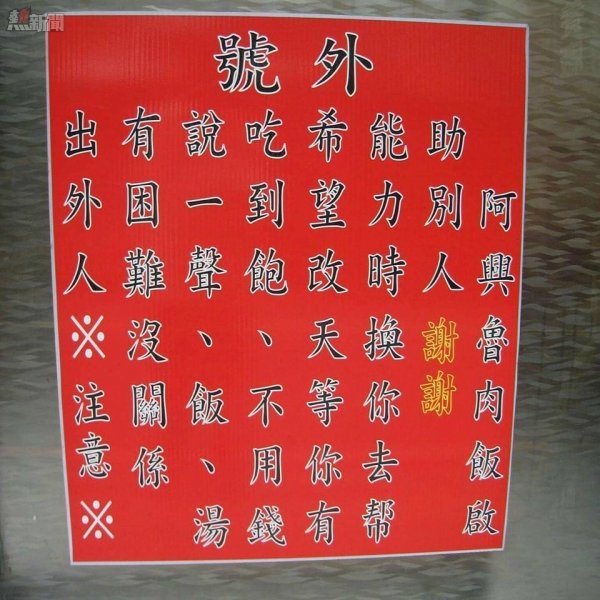 新聞
號外
出外人※注意※
有困難沒關係
說一聲、飯、湯
吃到飽、不用錢
希望改天等你有
能力時換你去帮
助別人謝謝
阿興魯肉飯啟